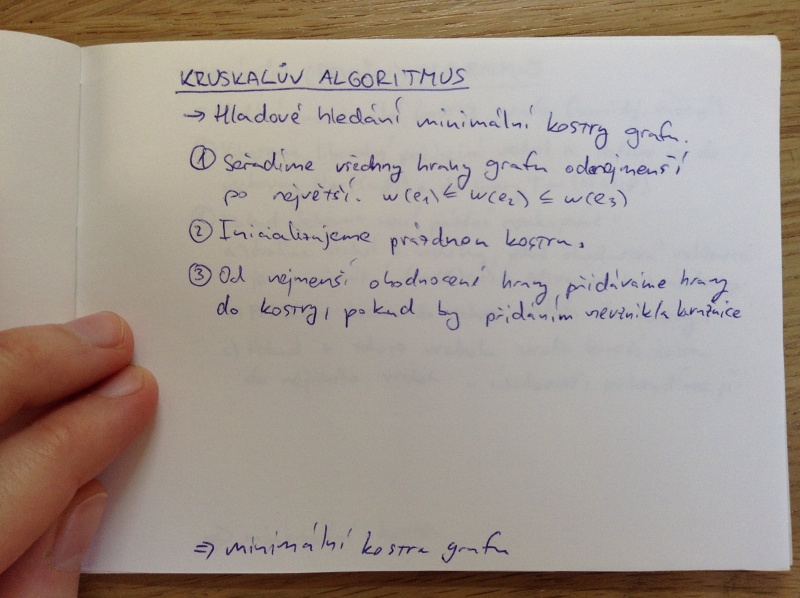 KRUSKALŮV ALGORITMUS
→ Hladové hledání minimální kostry grafu.
① Seřadíme všechny hrany grafu od nejmenší
po největší. w(e1) ≤ w(e2) ≤ w(e3)
② Inicializujeme prázdnou kostru.
③ Od nejmenší ohodnocení hrany, přidáváme hrany
do kostry, pokud by přidáním nevznikla kružnice
⇒ minimální kostra grafu